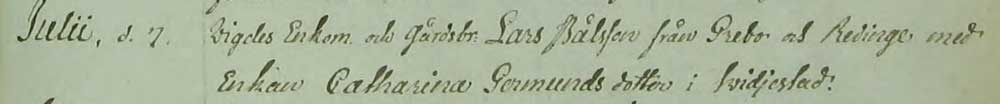 Julii, d. 7. Vigdes Enkom. och Gårdsbr. Lars Pålsson från Grebo och Redinge med
Enkan Catharina Germunds dotter i Hvidjestad.